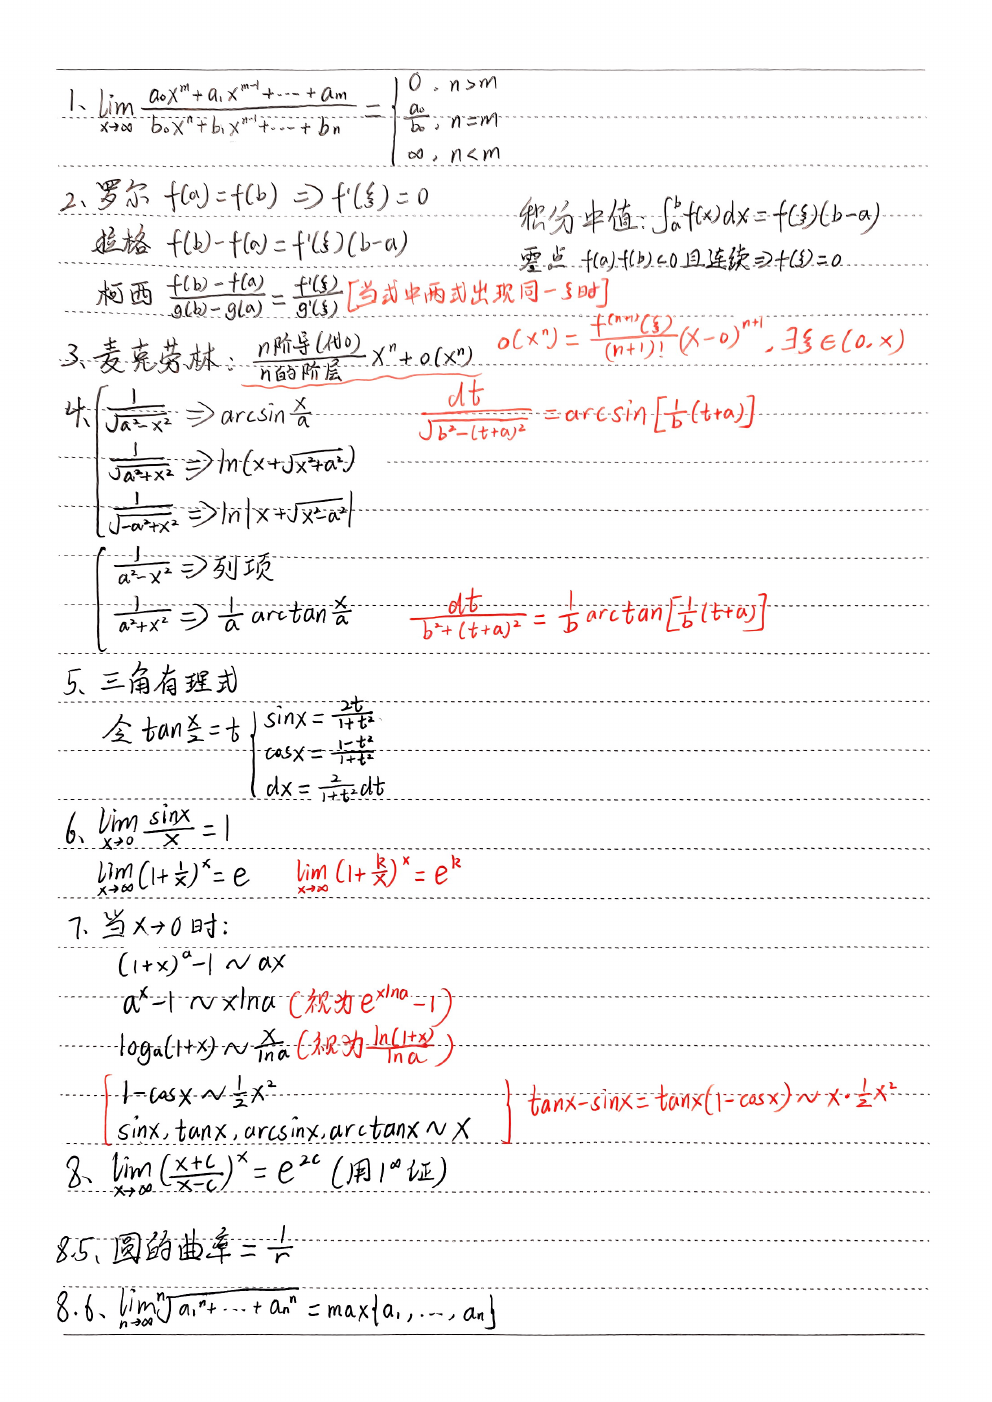 1、lim x→∞ (a₀x^m+a₁x^(m-1)+…+am)/(b₀x^n+b₁x^(n-1)+…+bn) = { 0, n>m
a₀/b₀, n=m
∞, n<m
2、罗尔 f(a)=f(b) ⇒ f'(ξ)=0
积分中值:∫ₐᵇf(x)dx=f(ξ)(b-a)
拉格 f(b)-f(a)=f'(ξ)(b-a)
零点 f(a)·f(b)<0且连续⇒f(ξ)=0
柯西 (f(b)-f(a))/(g(b)-g(a)) = f'(ξ)/g'(ξ) [当式中两式出现同一ξ时]
3、麦克劳林: n阶导(代0)/n的阶层 xⁿ+o(xⁿ)
o(xⁿ)= f^(n+1)(ξ)/(n+1)! (x-0)^(n+1), ∃ξ∈(0,x)
4、 1/√(a²-x²) ⇒ arcsin x/a
dt/√(b²-(t+a)²) = arcsin[1/b(t+a)]
1/√(a²+x²) ⇒ ln(x+√(x²+a²))
1/√(-a²+x²) ⇒ ln|x+√(x²-a²)|
1/(a²-x²) ⇒ 列项
1/(a²+x²) ⇒ 1/a arctan x/a
dt/(b²+(t+a)²) = 1/b arctan[1/b(t+a)]
5、三角有理式
令 tan x/2 = t { sinx = 2t/(1+t²)
cosx = (1-t²)/(1+t²)
dx = 2/(1+t²) dt
6、lim x→0 sinx/x = 1
lim x→∞ (1+1/x)^x = e lim x→∞ (1+k/x)^x = e^k
7、当x→0时:
(1+x)^a-1 ~ ax
a^x-1 ~ xlna (视为e^(xlna)-1)
logₐ(1+x) ~ x/lna (视为 ln(1+x)/lna)
1-cosx ~ 1/2x²
sinx, tanx, arcsinx, arctanx ~ x
tanx-sinx = tanx(1-cosx) ~ x·1/2x²
8、lim x→∞ ((x+c)/(x-c))^x = e^(2c) (用1^∞证)
8.5、圆的曲率 = 1/r
8.6、lim n→∞ ⁿ√(a₁ⁿ+…+aₙⁿ) = max{a₁,…,aₙ}